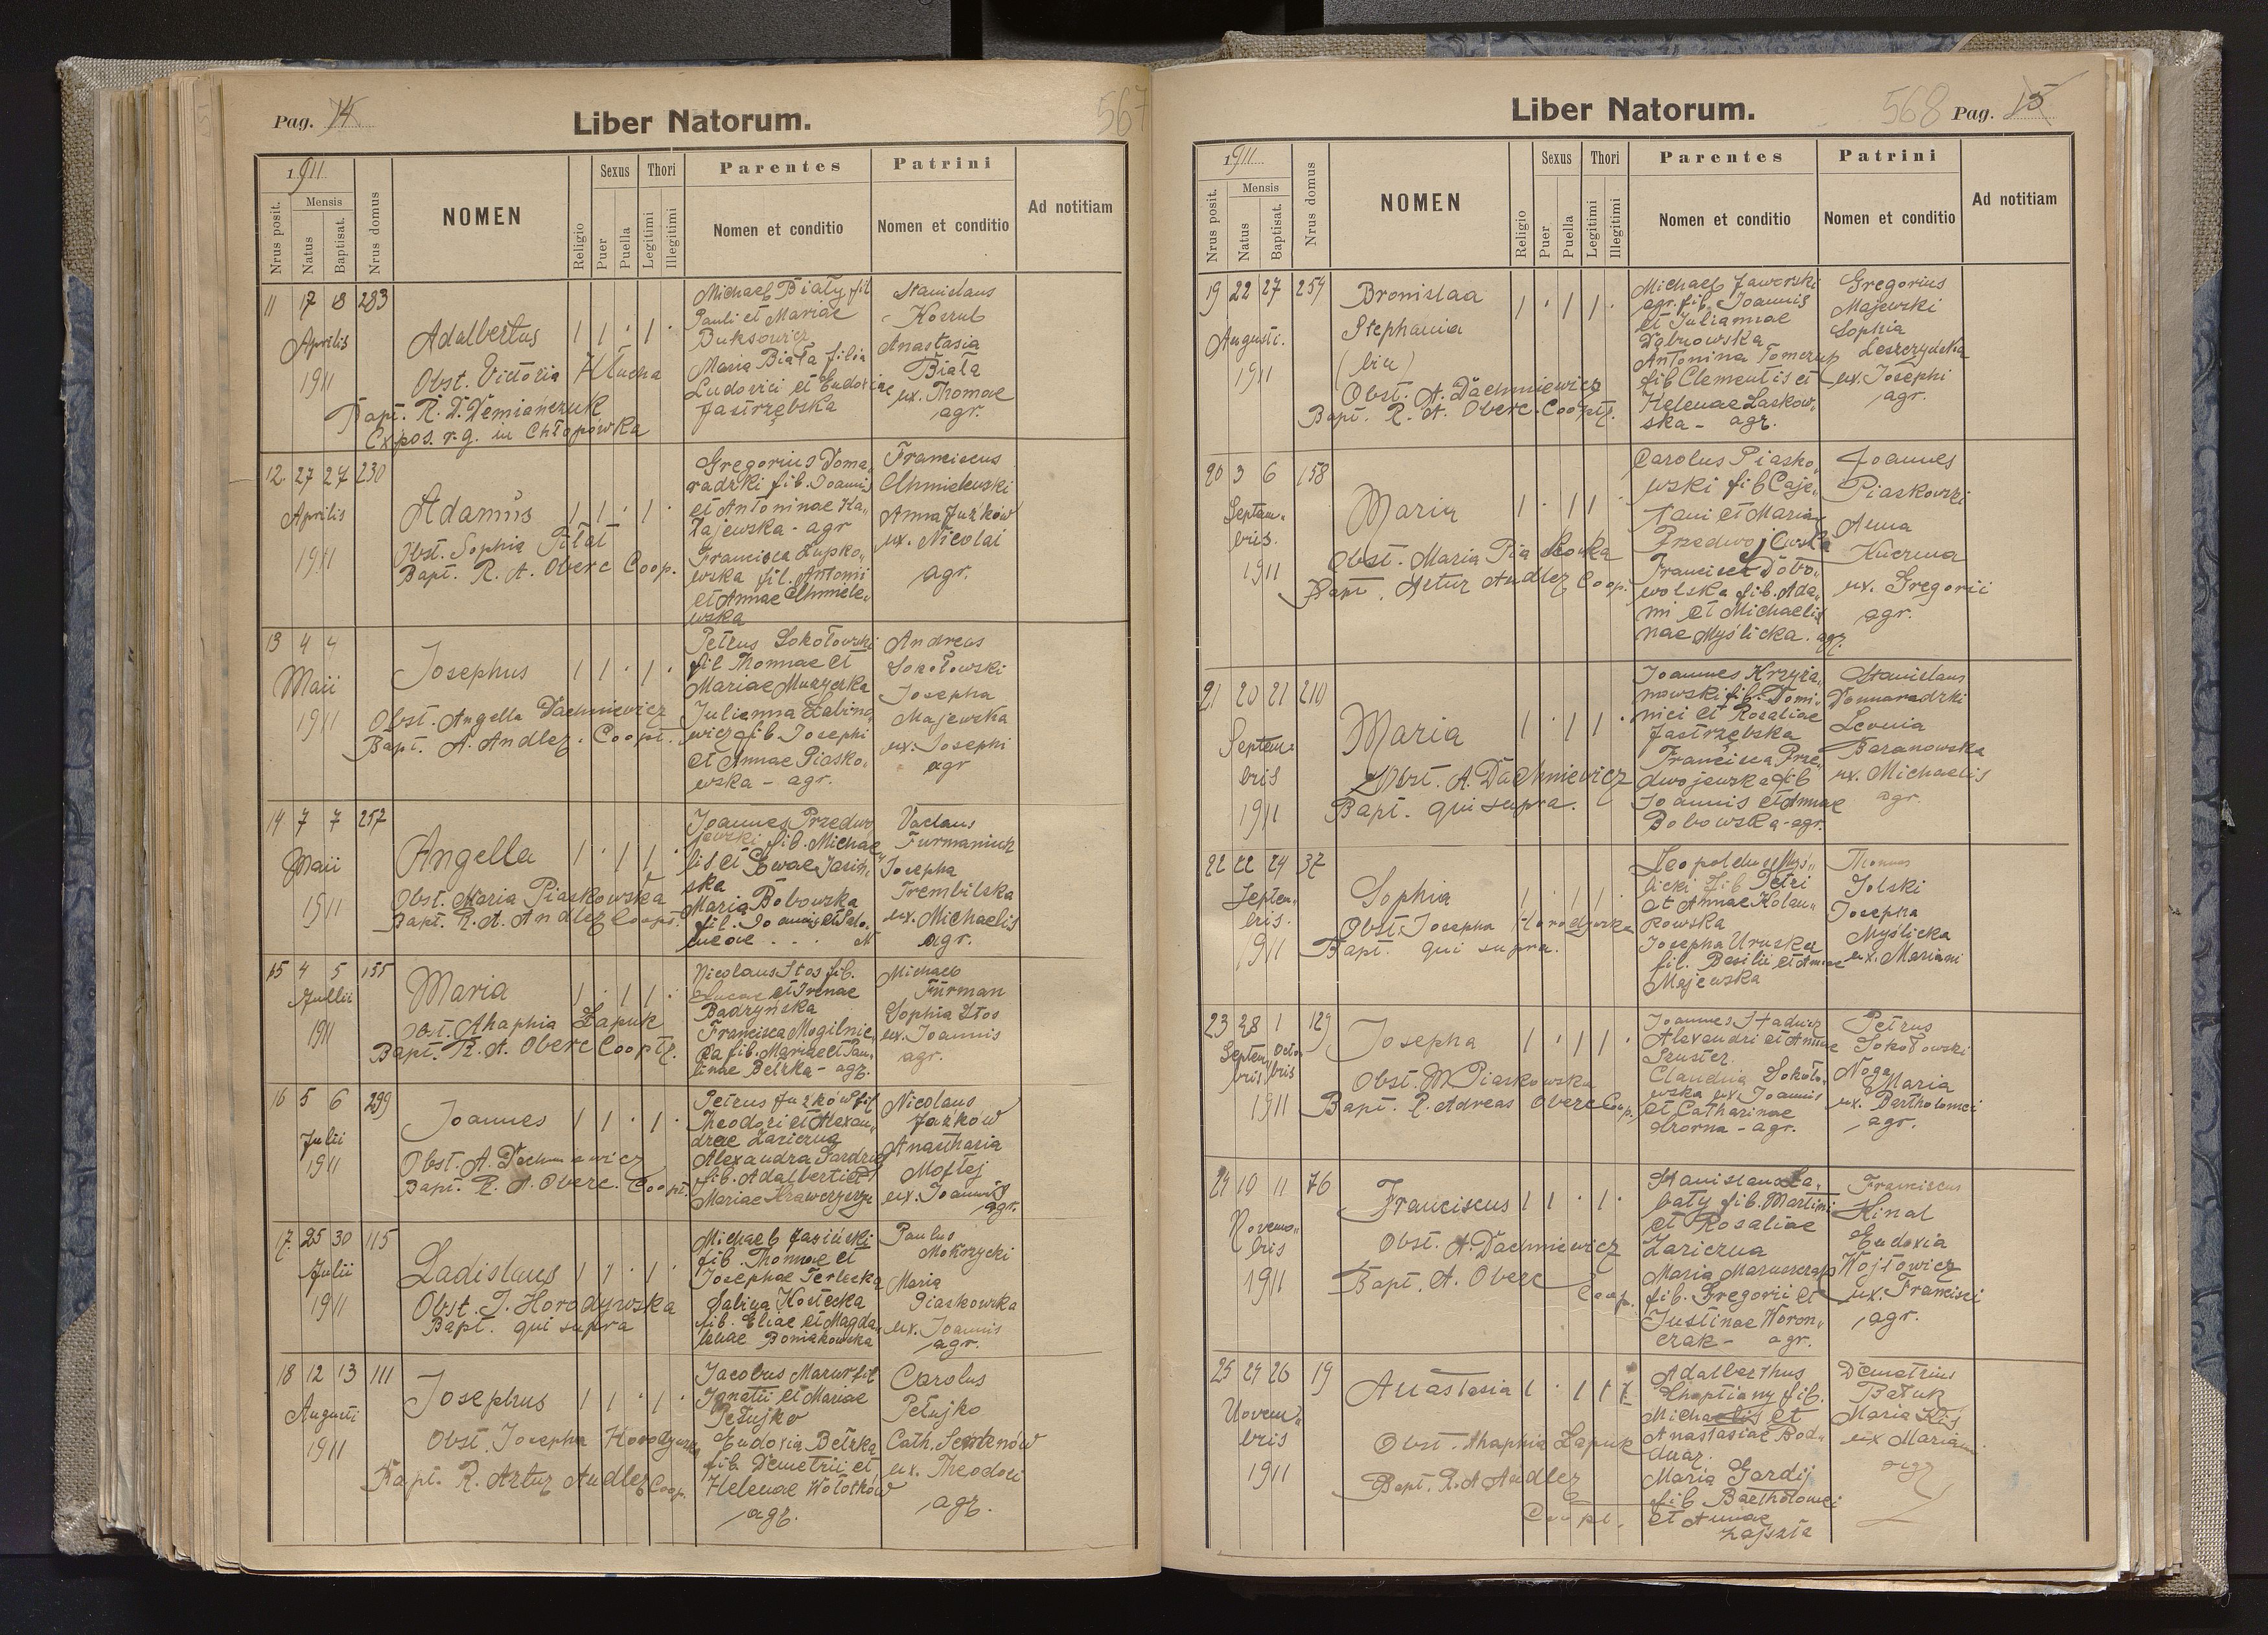 Pag. 14
Liber Natorum.
567
1911
Nrus posit.
Mensis
Natus
Baptisat.
Nrus domus
NOMEN
Religio
Sexus
Puer
Puella
Thori
Legitimi
Illegitimi
Parentes
Nomen et conditio
Patrini
Nomen et conditio
Ad notitiam
11 17 18 283
Aprilis
1911
Adalbertus 1 1 · 1 ·
Obst. Victoria Hlucha
Bapt. R. D. Demianczuk
Expos. r. g. in Chłopówka
Michael Biały fil
Pauli et Mariae
Buksowicz
Maria Biała filia
Ludovici et Eudoxiae
Jastrzębska
Stanislaus
Koszul
Anastasia
Biała
ux. Thomae
agr.
12. 27 27 230
Aprilis
1911
Adamus 1 1 · 1 ·
Obst. Sophia Piłat
Bapt. R. A. Oberc Coop.
Gregorius Doma„
radzki fil. Joannis
et Antoninae Ka„
tajewska - agr
Francisca Łupko„
wska fil. Antonii
et Annae Chmiele„
wska
Franciscus
Chmielewski
Anna Jużków
ux. Nicolai
agr.
13 4 4
Maii
1911
Josephus 1 1 · 1 ·
Obst. Angella Dachniewicz
Bapt. A. Andlez. Coopt.
Petrus Sokołowski
fil Thomae et
Mariae
Julianna
wicz fil Josephi
et Annae Piasko„
wska - agr.
Andreas
Sokołowski
Josepha
Majewska
ux. Josephi
agr
14 7 7 257
Maii
1911
Angella 1 · 1 1 ·
Obst. Maria Piaskowska
Bapt. R. A. Andlez Coopt.
Joannes Przedwo
jewski fil. Michae„
lis et Ewae Jasiń„
ska
Maria Bobowska
fil. Joannis et Salo„
meae
Vaclaus
Furmaniuk
Josepha
Trembilska
ux. Michaelis
agr.
15 4 5 155
Jullii
1911
Maria 1 · 1 1 ·
Obst. Ahaphia Łapuk
Bapt. R. A. Oberc Cooptz.
Nicolaus Stos fil.
Lucae et Irenae
Badzyńska
Francisca Mogilnic„
ka fil. Mariae et Pau„
linae Bełzka - agr.
Michael
Furman
Sophia Stos
ux. Joannis
agr.
16 5 6 299
Julii
1911
Joannes 1 1 · 1 ·
Obst. A. Dachniewicz
Bapt. R. A. Oberc. Coopt.
Petrus Jużków fil
Theodori et Alexan„
drae Zariczna
Alexandra
fil. Adalberti et
Mariae
Nicolaus
Jużków
Anasthasia
Mojtej
ux. Joannis
agr.
17. 25 30 115
Julii
1911
Ladislaus 1 1 · 1 ·
Obst. J. Horodywska
Bapt. qui supra
Michael Jasiński
fil. Thomae et
Josephae Terlecka
Sabina Kostecka
fil. Eliae et Magda„
lenae Boniakowska
Paulus
Mokrzycki
Maria
Piaskowska
ux. Joannis
agr.
18 12 13 111
Augusti
1911
Josephus 1 1 · 1 ·
Obst. Josepha
Bapt. R. Artur Andlez Coop.
Jacobus Mazur fil
Ignatii et Mariae
Petujko
Eudoxia Bełzka
fil. Demetrii et
Helenae Wołotków
agr.
Carolus
Petujko
Cath. Semenów
ux. Theodori
agr.
Liber Natorum.
568 Pag. 15
1911
Nrus posit.
Mensis
Natus
Baptisat.
Nrus domus
NOMEN
Religio
Sexus
Puer
Puella
Thori
Legitimi
Illegitimi
Parentes
Nomen et conditio
Patrini
Nomen et conditio
Ad notitiam
19 22 27 254
Augusti.
1911
Bronislaa 1 · 1 1 ·
Stephania
Obst. A. Dachniewicz
Bapt. R. A. Oberc. Cooptz.
Michael Jaworski
agr. fil. Joannis
et Juliannae
Dąbrowska
Antonina
fil Clementis et
Helenae Laskow„
ska - agr.
Gregorius
Majewski
Sophia
Leszczyńska
ux. Josephi
agr.
20 3 6 158
Septem„
bris.
1911
Maria 1 · 1 1 ·
Obst. Maria
Bapt. Artur Andlez Coop.
Carolus Piasko„
wski fil Caje„
tani et Maria
Francisca Dobo„
wolska fil. Ada„
mi et Michaeli„
nae Myślicka. agr.
Joannes
Piaskowski
Anna
Kuczma
ux. Gregorii
agr.
21 20 21 210
Septem„
bris
1911
Maria 1 · 1 1 ·
Obst. A. Dachniewicz
Bapt. qui supra.
Joannes Krzyża„
nowski fil. Domi„
nici et Rosaliae
Jastrzębska
Francisca Prze„
dwojewska fil
Joannis et Annae
Bobowska - agr.
Stanislaus
Domaradzki
Levnia
Baranowska
ux. Michaelis
agr
22 22 24 37
Septem„
bris.
1911
Sophia 1 · 1 1 ·
Obst. Josepha
Bapt. qui supra.
Leopoldus Myś„
licki fil Petri
et Annae Kolan„
kowska
Josepha Uruska
fil. Basilii et Annae
Majewska
Thomas
Jolski
Josepha
Myślicka
ux. Mariani
23 28 1 129
Septem„ Octo„
bris bris
1911
Josepha 1 · 1 1 ·
Obst. M Piaskowska
Bapt. R. Adreas Oberc Coop.
Joannes
Alexandri et Annae
Szuster.
Claudia Sokoło„
wska ux. Joannis
et Catharinae
agr.
Petrus
Sokołowski
Noga
Maria
ux. Bartholomei
agr.
24 10 11 76
Novem„
bris
1911
Franciscus 1 1 · 1 ·
Obst. A. Dachniewicz
Bapt. A. Oberc Coop.
Stanislaus Ła„
baty fil. Martini
et Rosaliae
Zariczna
Maria
fil. Gregorii et
Justinae Woron„
czak - agr.
Franciscus
Kinal
Eudoxia
Wojtowicz
ux. Francisci
agr.
25 24 26 19
Novem„
bris
1911
Anastasia 1 · 1 1
Obst. Ahaphia Łapuk
Bapt. R. A Andlez
Coopt.
Adalberthus
Chaptiany fil.
Michaelis et
Anastasiae Bod„
duar.
Maria Gardij
fil Bartholomei
et Annae
Demetrius
Batuk
Maria Kis
ux Mariani
agr